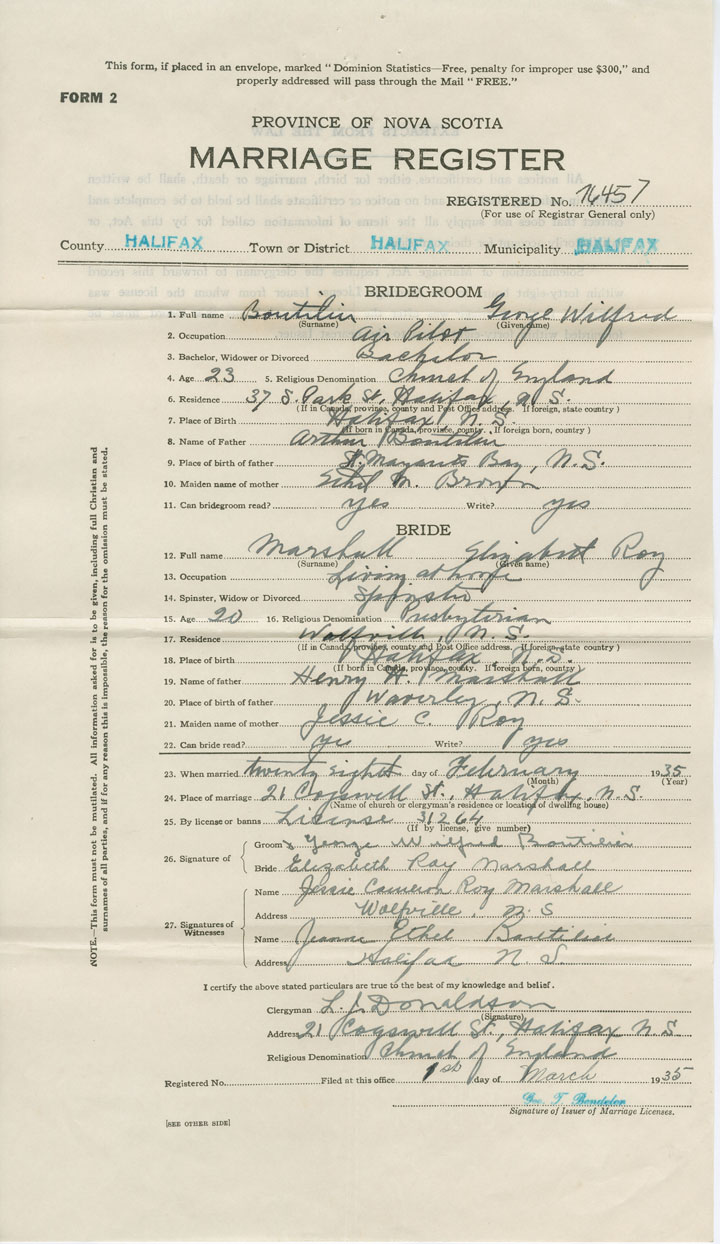 This form, if placed in an envelope, marked "Dominion Statistics—Free, penalty for improper use $300," and
properly addressed will pass through the Mail "FREE."
FORM 2
PROVINCE OF NOVA SCOTIA
MARRIAGE REGISTER
REGISTERED No. 16457
(For use of Registrar General only)
County HALIFAX Town or District HALIFAX Municipality HALIFAX
BRIDEGROOM
1. Full name Boutilier George Wilfred
(Surname) (Given name)
2. Occupation Air Pilot
3. Bachelor, Widower or Divorced Bachelor
4. Age 23 5. Religious Denomination Church of England
6. Residence 37 S. Park St, Halifax, N.S.
(If in Canada, province, county and Post Office address. If foreign, state country)
7. Place of Birth Halifax, N.S.
(If born in Canada, province, county. If foreign born, country)
8. Name of Father Arthur Boutilier
9. Place of birth of father St. Margarets Bay, N.S.
10. Maiden name of mother Ethel M.
11. Can bridegroom read? yes Write? yes
BRIDE
12. Full name Marshall Elizabeth Roy
(Surname) (Given name)
13. Occupation Living at home
14. Spinster, Widow or Divorced Spinster
15. Age 20 16. Religious Denomination Presbyterian
17. Residence Wolfville, N.S.
(If in Canada, province, county and Post Office address. If foreign, state country)
18. Place of birth Halifax, N.S.
(If born in Canada, province, county. If foreign born, country)
19. Name of father Henry H. Marshall
20. Place of birth of father Waverley, N.S.
21. Maiden name of mother Jessie C. Roy
22. Can bride read? yes Write? yes
23. When married twenty eighth day of February 1935
(Month) (Year)
24. Place of marriage 21 Cogswell St., Halifax, N.S.
(Name of church or clergyman's residence or location of dwelling house)
25. By license or banns License 31264
(If by license, give number)
26. Signature of
Groom George Wilfred Boutilier
Bride Elizabeth Roy Marshall
27. Signatures of Witnesses
Name Jessie Cameron Roy Marshall
Address Wolfville, N.S.
Name Jeanne Ethel Boutilier
Address Halifax N.S.
I certify the above stated particulars are true to the best of my knowledge and belief.
Clergyman L. J. Donaldson
(Signature)
Address 21 Cogswell St., Halifax N.S.
Religious Denomination Church of England
Registered No. Filed at this office 1st day of March 1935
Signature of Issuer of Marriage Licenses.
[SEE OTHER SIDE]
NOTE.—This form must not be mutilated. All information asked for is to be given, including full Christian and
surnames of all parties, and if for any reason this is impossible, the reason for the omission must be stated.